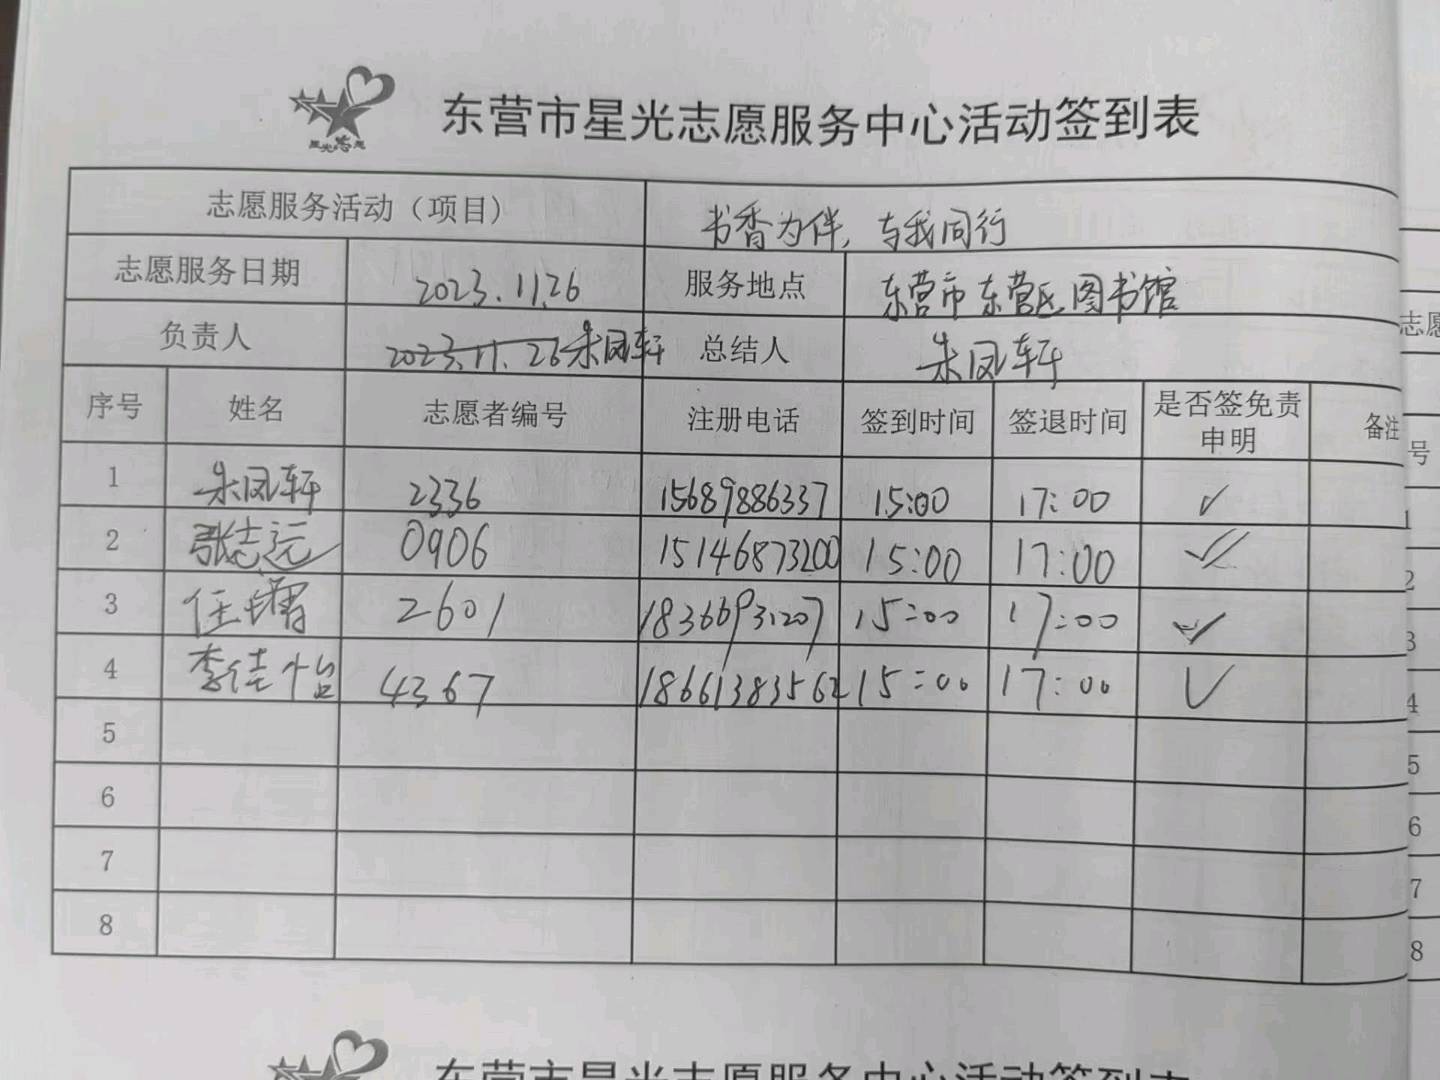 星光志愿
东营市星光志愿服务中心活动签到表
志愿服务活动（项目） 书香为伴，与我同行
志愿服务日期 2023.11.26 服务地点 东营市东营区图书馆
负责人 2023.11.26 朱凤轩 总结人 朱凤轩
序号 姓名 志愿者编号 注册电话 签到时间 签退时间 是否签免责申明 备注
1 朱凤轩 2336 15689886337 15:00 17:00 ✓
2 张志远 0906 15146873200 15:00 17:00 ✓
3 任 2601 18366931207 15:00 17:00 ✓
4 李佳怡 4367 18661383562 15:00 17:00 ✓
5
6
7
8
东营市星光志愿服务中心活动签到表
志愿
号
1
2
3
4
5
6
7
8